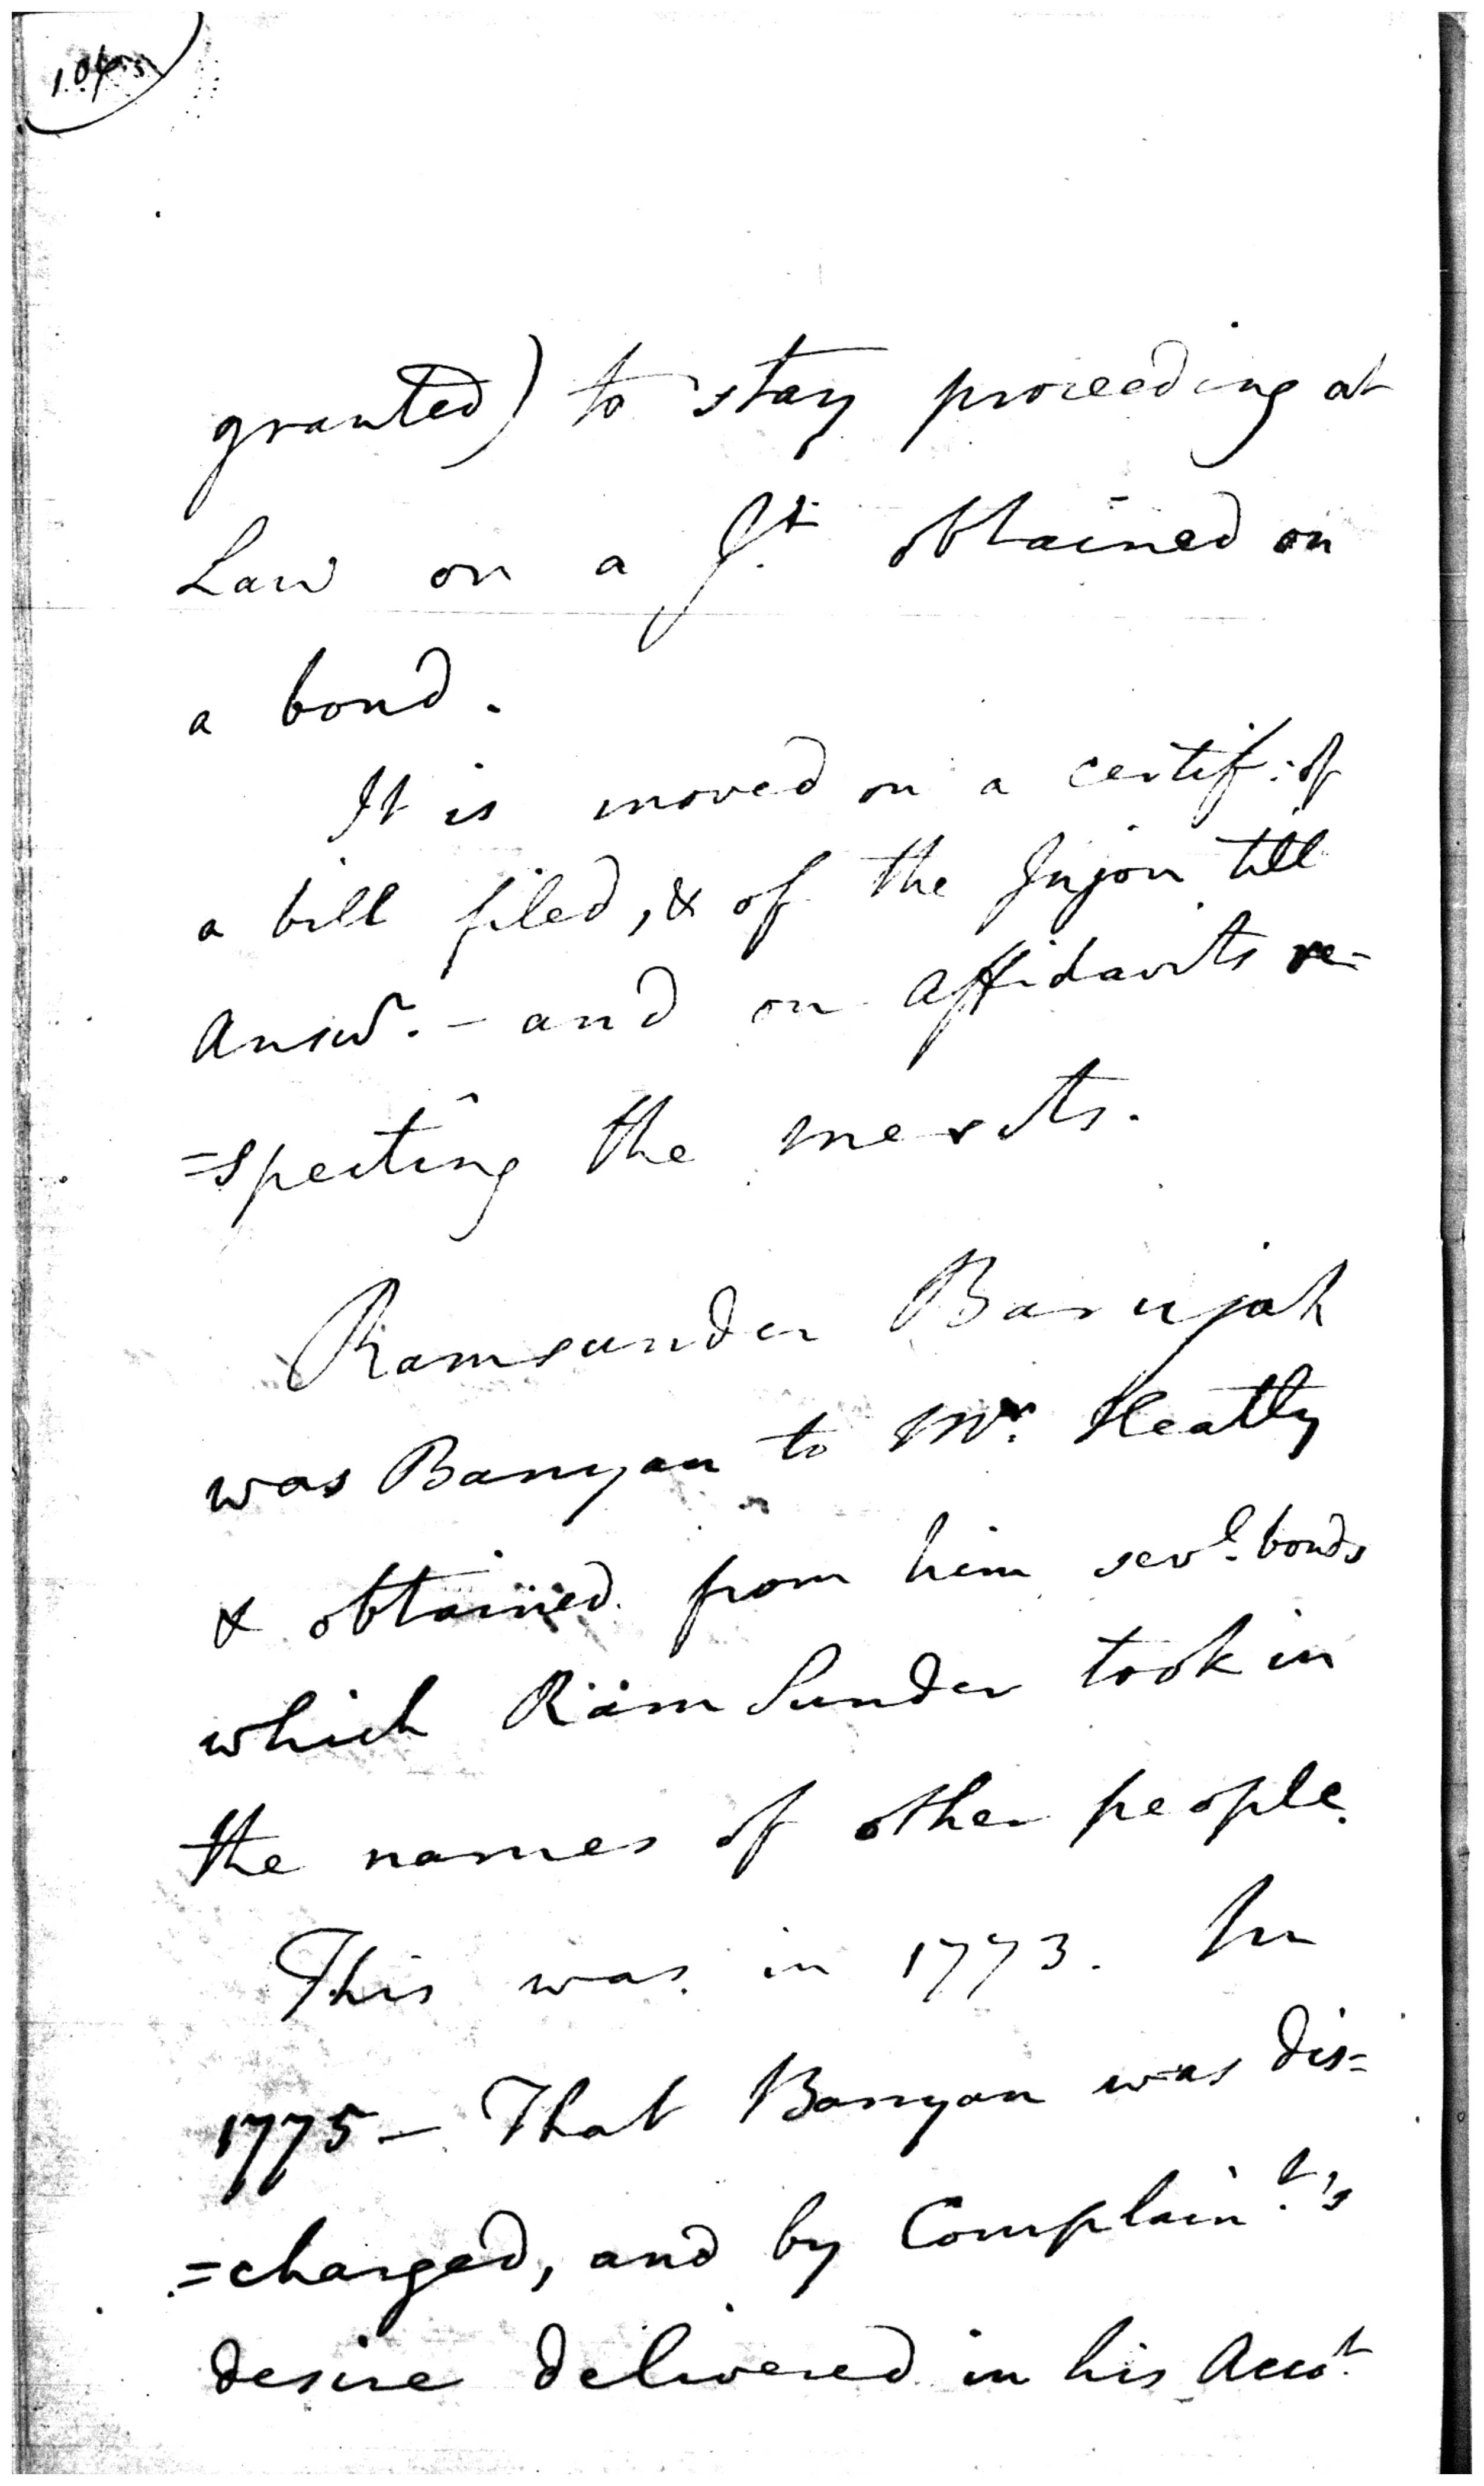 granted) to stay proceeding at
Law on a Jt. obtained on
a bond.
It is moved on a certif: of
a bill filed, & of the Injon till
Answr. - and on affidavits re=
=specting the merits.
Ramsunder Banujah
was Banyan to Mr. Keatly
& obtained from him sevl. bonds
which Ram Sunder took in
the names of other people.
This was in 1773. In
1775 - That Banyan was dis=
=charged, and by Complaint.'s
desire delivered in his Accot.